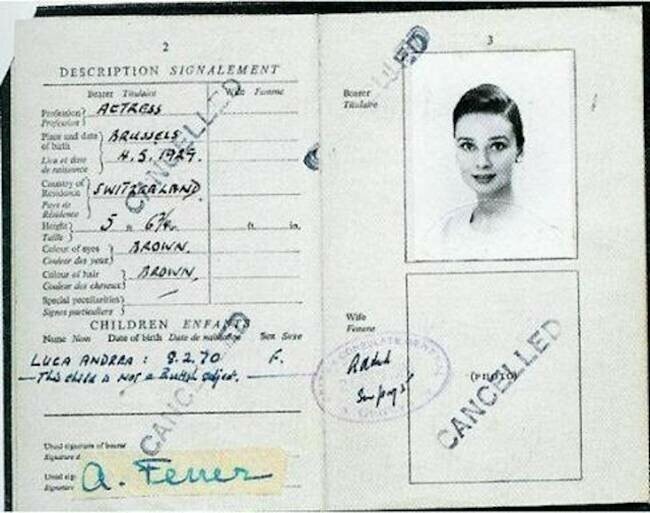 2
DESCRIPTION SIGNALEMENT
Bearer Titulaire
Wife Femme
Profession
Profession
ACTRESS
Place and date
of birth
BRUSSELS
Lieu et date
de naissance
4.5.1929.
Country of
Residence
SWITZERLAND
Pays de
Résidence
Height
Taille
5 ft. 6¾in.
ft. in.
Colour of eyes
Couleur des yeux
BROWN.
Colour of hair
Couleur des cheveux
BROWN.
Special peculiarities
Signes particuliers
CHILDREN ENFANTS
Name Nom Date of birth Date de naissance Sex Sexe
LUCA ANDREA : 8.2.70 F.
This child is not a British subject.
Usual signature of bearer
Signature
Usual
Signature
A. Ferrer
CANCELLED
CANCELLED
3
CANCELLED
Bearer
Titulaire
Wife
Femme
CONSULATE
(PHOTO)
CANCELLED